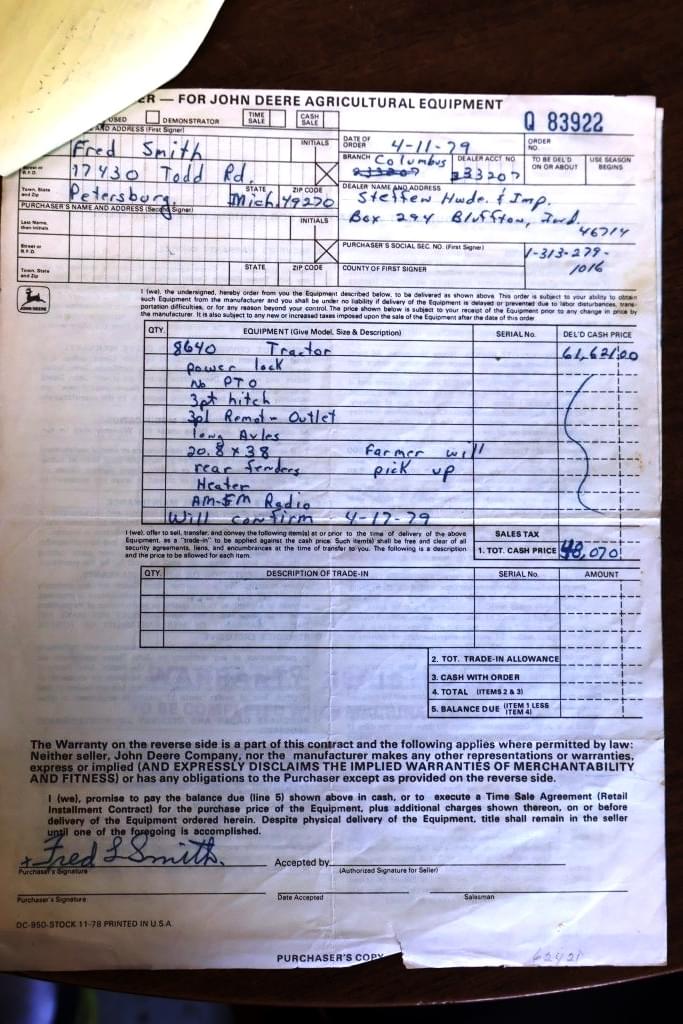 ER — FOR JOHN DEERE AGRICULTURAL EQUIPMENT
USED DEMONSTRATOR TIME SALE CASH SALE
Q 83922
AND ADDRESS (First Signer) INITIALS
Fred Smith
DATE OF ORDER 4-11-79
ORDER NO.
17430 Todd Rd.
BRANCH Columbus DEALER ACCT NO. 233207
TO BE DEL'D ON OR ABOUT USE SEASON BEGINS
Street or R.F.D.
Town, State and Zip Petersburg, STATE Mich. ZIP CODE 49270
DEALER NAME AND ADDRESS
Steffen Hwde. & Imp.
Box 294 Bluffton, Ind.
46714
PURCHASER'S NAME AND ADDRESS (Second Signer)
Last Name, then Initials INITIALS
Street or R.F.D.
PURCHASER'S SOCIAL SEC. NO. (First Signer)
1-313-279-
1016
Town, State and Zip STATE ZIP CODE
COUNTY OF FIRST SIGNER
JOHN DEERE
I (we), the undersigned, hereby order from you the Equipment described below, to be delivered as shown above. This order is subject to your ability to obtain
such Equipment from the manufacturer and you shall be under no liability if delivery of the Equipment is delayed or prevented due to labor disturbances, trans-
portation difficulties, or for any reason beyond your control. The price shown below is subject to your receipt of the Equipment prior to any change in price by
the manufacturer. It is also subject to any new or increased taxes imposed upon the sale of the Equipment after the date of this order.
QTY. EQUIPMENT (Give Model, Size & Description) SERIAL No. DEL'D CASH PRICE
8640 Tractor 61,621.00
power lock
no PTO
3pt hitch
3pl Remot- Outlet
long Axles
20.8 x 38 Farmer will
rear fenders pick up
Heater
AM-FM Radio
Will confirm 4-17-79
I (we), offer to sell, transfer, and convey the following item(s) at or prior to the time of delivery of the above
Equipment, as a "trade-in" to be applied against the cash price. Such item(s) shall be free and clear of all
security agreements, liens, and encumbrances at the time of transfer to you. The following is a description
and the price to be allowed for each item.
SALES TAX
1. TOT. CASH PRICE 48,070
QTY. DESCRIPTION OF TRADE-IN SERIAL No. AMOUNT
2. TOT. TRADE-IN ALLOWANCE
3. CASH WITH ORDER
4. TOTAL (ITEMS 2 & 3)
5. BALANCE DUE (ITEM 1 LESS ITEM 4)
The Warranty on the reverse side is a part of this contract and the following applies where permitted by law:
Neither seller, John Deere Company, nor the manufacturer makes any other representations or warranties,
express or implied (AND EXPRESSLY DISCLAIMS THE IMPLIED WARRANTIES OF MERCHANTABILITY
AND FITNESS) or has any obligations to the Purchaser except as provided on the reverse side.
I (we), promise to pay the balance due (line 5) shown above in cash, or to execute a Time Sale Agreement (Retail
Installment Contract) for the purchase price of the Equipment, plus additional charges shown thereon, on or before
delivery of the Equipment ordered herein. Despite physical delivery of the Equipment, title shall remain in the seller
until one of the foregoing is accomplished.
x Fred L Smith. Accepted by
Purchaser's Signature (Authorized Signature for Seller)
Purchaser's Signature Date Accepted Salesman
DC-950-STOCK 11-78 PRINTED IN U.S.A.
PURCHASER'S COPY
62421